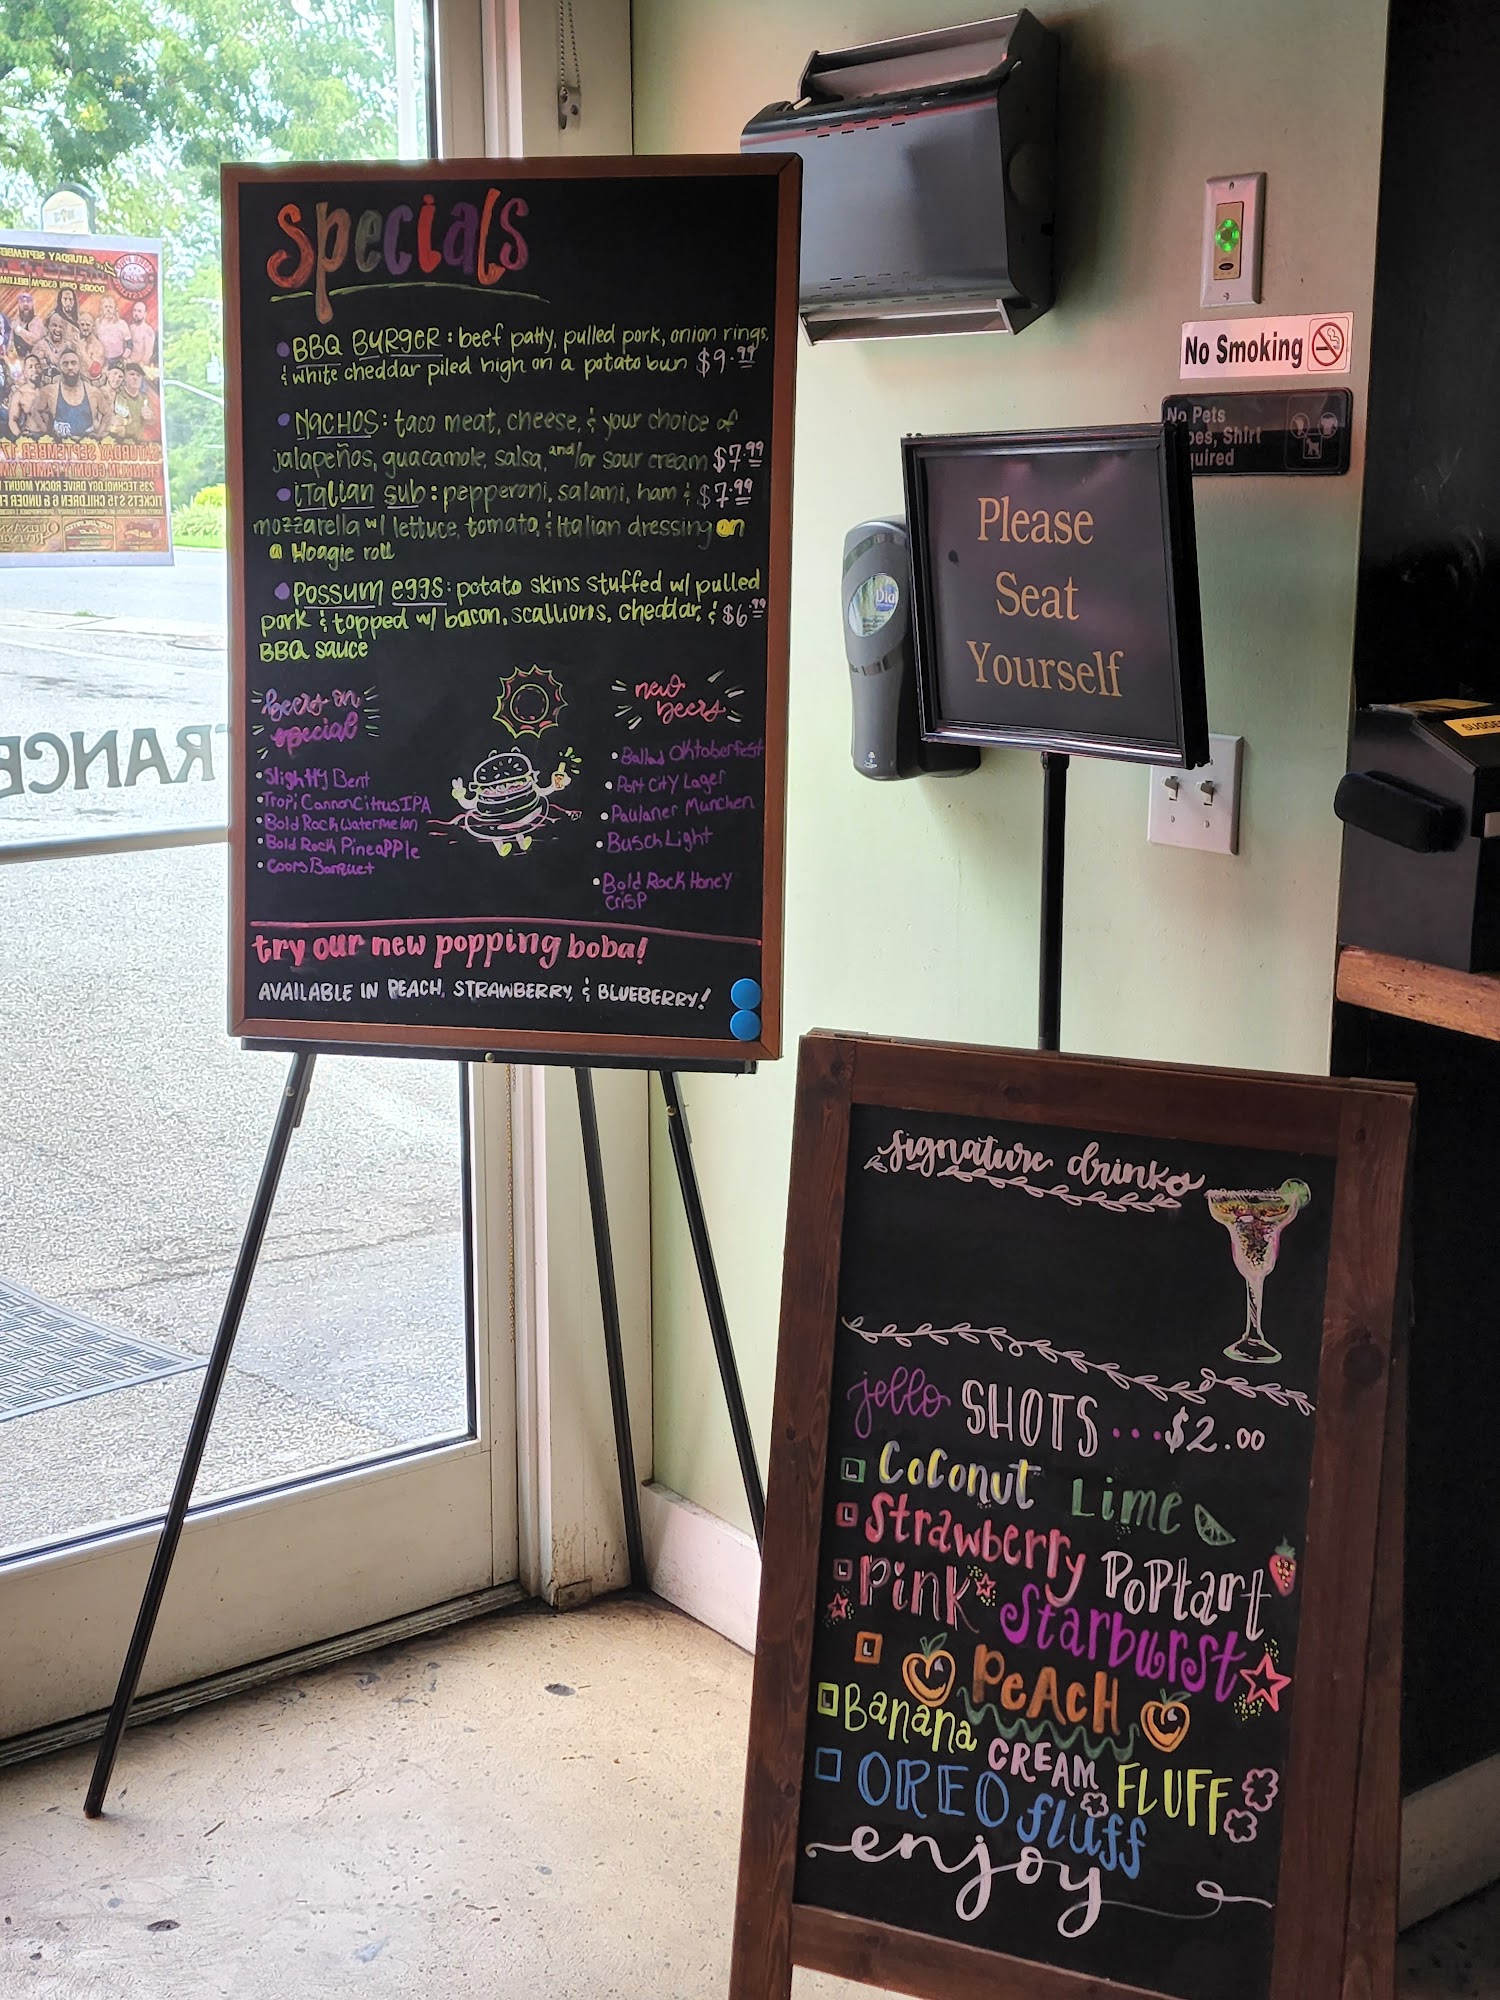 Specials
BBQ BURGER: beef patty, pulled pork, onion rings,
& white cheddar piled high on a potato bun $9.99
NACHOS: taco meat, cheese, & your choice of
jalapeños, guacamole, salsa, and/or sour cream $7.99
iTalian sub: pepperoni, salami, ham & $7.99
mozzarella w/ lettuce, tomato, & Italian dressing on
a Hoagie roll
Possum eggs: potato skins stuffed w/ pulled
pork & topped w/ bacon, scallions, cheddar, & $6.99
BBQ sauce
beers on
special
Slightly Bent
Tropi Cannon Citrus IPA
Bold Rock Watermelon
Bold Rock Pineapple
Coors Banquet
new
beers
Ballad Oktoberfest
Port City Lager
Paulaner Munchen
Busch Light
Bold Rock Honey
Crisp
try our new popping boba!
AVAILABLE IN PEACH, STRAWBERRY, & BLUEBERRY!
No Smoking
No Pets
Shirt
Please
Seat
Yourself
Dial
signature drinks
jello SHOTS...$2.00
Coconut Lime
Strawberry Poptart
Pink Starburst
Peach
Banana CREAM FLUFF
OREO fluff
enjoy
SATURDAY SEPTEMBER
DOORS OPEN 630PM
SATURDAY SEPTEMBER 17
235 TECHNOLOGY DRIVE ROCKY MOUNT
TICKETS $15 CHILDREN 6 & UNDER